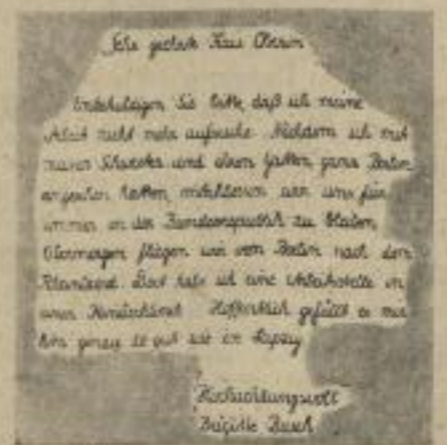 Sehr geehrte Frau Oberin
Entschuldigen Sie bitte, daß ich meine
Arbeit nicht mehr aufsuche. Nachdem ich mit
meiner Schwester und deren Gatten ganz Berlin
angesehen hatten, entschlossen wir uns für
immer in der Bundesrepublik zu bleiben.
Übermorgen fliegen wir von Berlin nach dem
Rheinland. Dort habe ich eine Arbeitsstelle in
einer. Hoffentlich gefällt es mir
dort genau so gut wie in Leipzig
Hochachtungsvoll
Brigitte